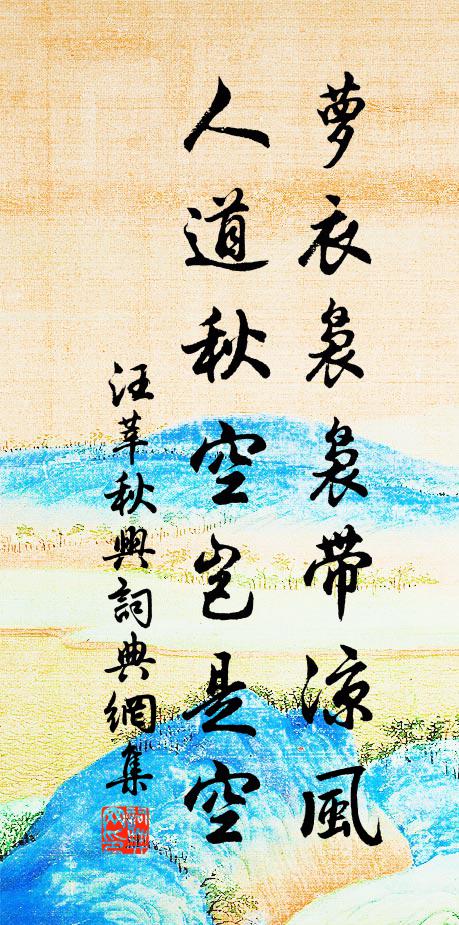 萝衣裊裊帶涼風
人道秋空岂是空
汪莘秋興詞典網集